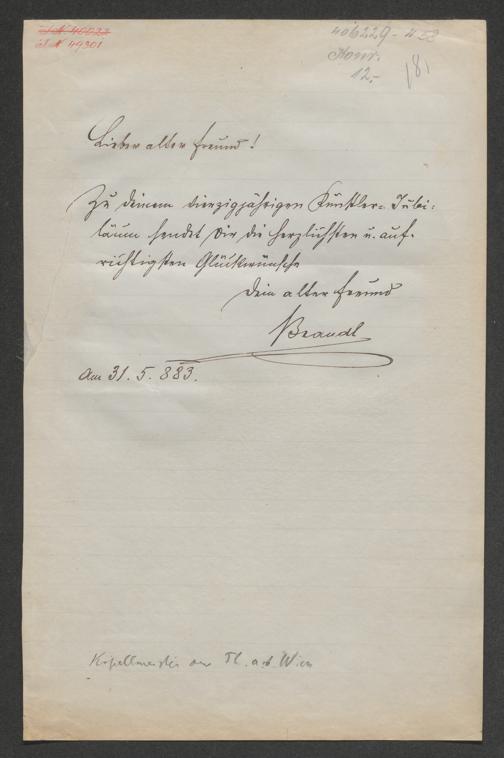 I N 49301
406229-
12.-
181
Lieber alter Freund!
Zu deinem vierzigjährigen Künstler-Jubi-
läum sendet Dir die herzlichsten u. auf-
richtigsten Glückwünsche
Dein alter Freund
Brandl
Am 31. 5. 883.
Kapellmeister am Th. a. d. Wien